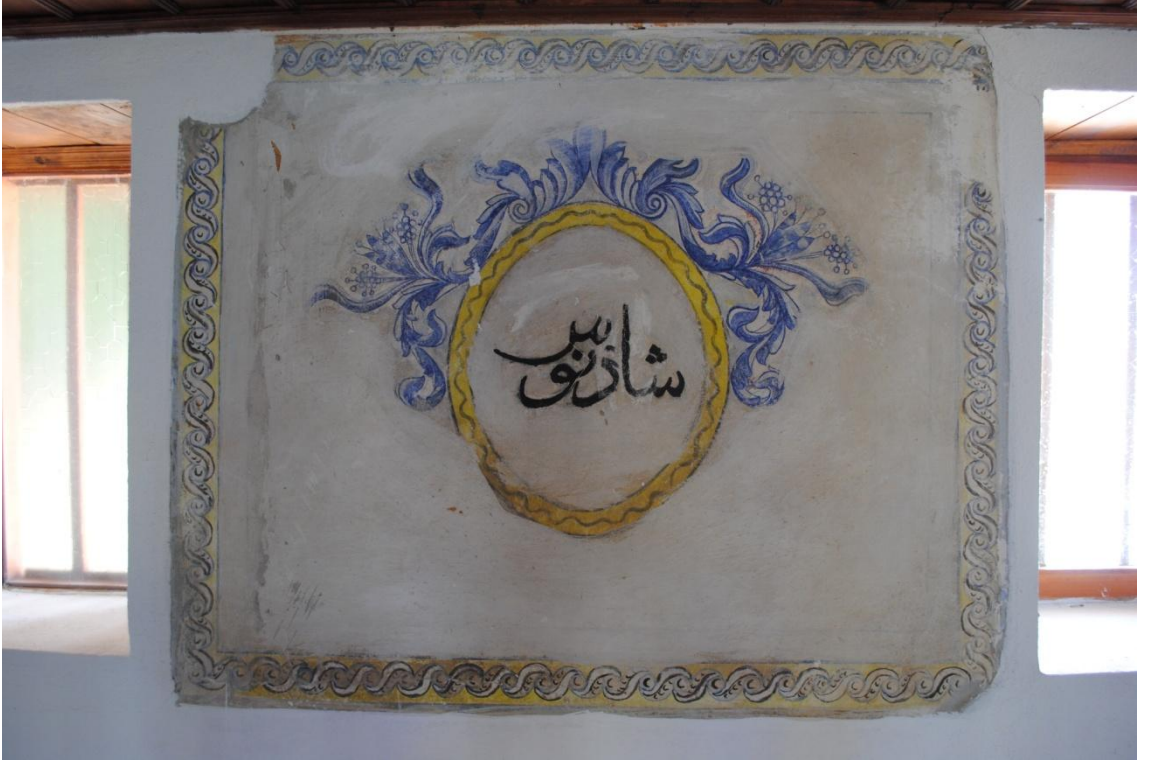 شاذنوس